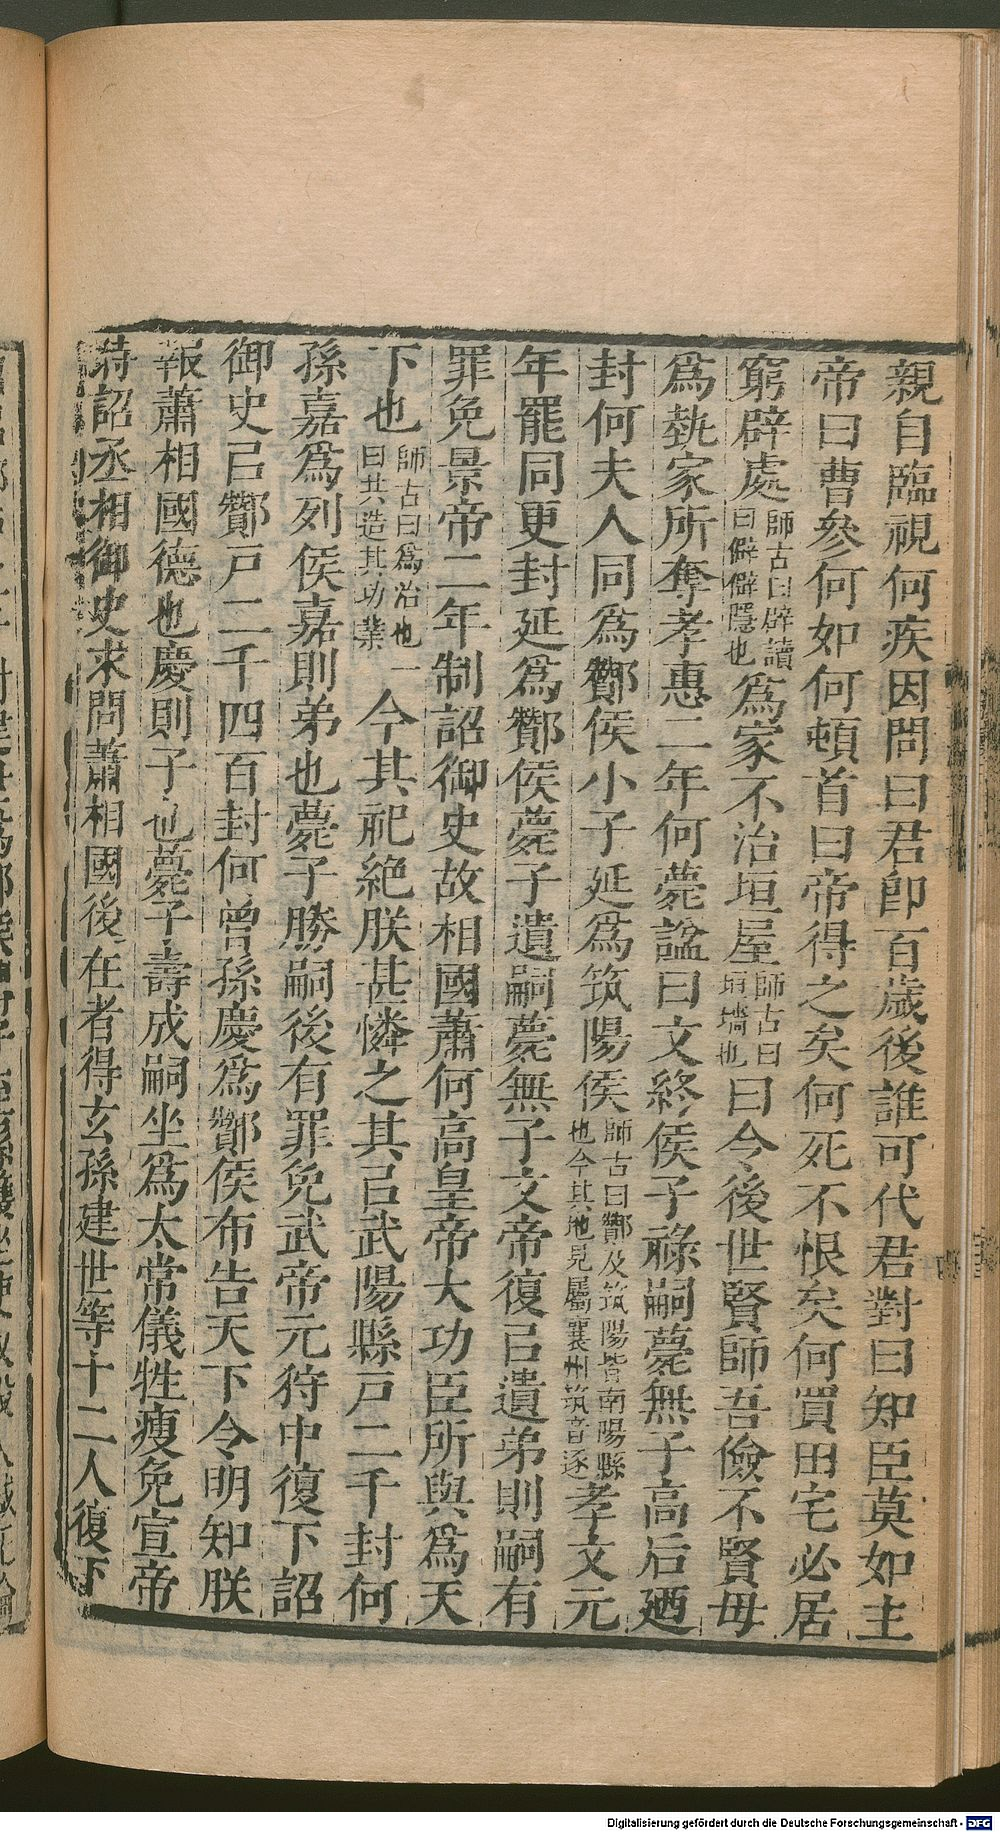 親自臨視何疾因問曰君卽百歲後誰可代君對曰知臣莫如主
帝曰曹參何如何頓首曰帝得之矣何死不恨矣何買田宅必居
窮辟處師古曰辟讀曰僻僻隱也爲家不治垣屋師古曰垣墻也曰令後世賢師吾儉不賢毋
爲埶家所奪孝惠二年何薨諡曰文終侯子祿嗣薨無子高后廼
封何夫人同爲酇侯小子延爲筑陽侯師古曰酇及筑陽皆南陽縣也今其地見屬襄州筑音逐孝文元
年罷同更封延爲酇侯薨子遺嗣薨無子文帝復㠯遺弟則嗣有
罪免景帝二年制詔御史故相國蕭何高皇帝大功臣所與爲天
下也師古曰爲治也一曰共造其功業今其祀絶朕甚憐之其㠯武陽縣戶二千封何
孫嘉爲列侯嘉則弟也薨子勝嗣後有罪免武帝元狩中復下詔
御史㠯酇戶二千四百封何曾孫慶爲酇侯布告天下令明知朕
報蕭相國德也慶則子也薨子壽成嗣坐爲太常儀牲瘦免宣帝
時詔丞相御史求問蕭相國後在者得玄孫建世等十二人復下
Digitalisierung gefördert durch die Deutsche Forschungsgemeinschaft - DFG